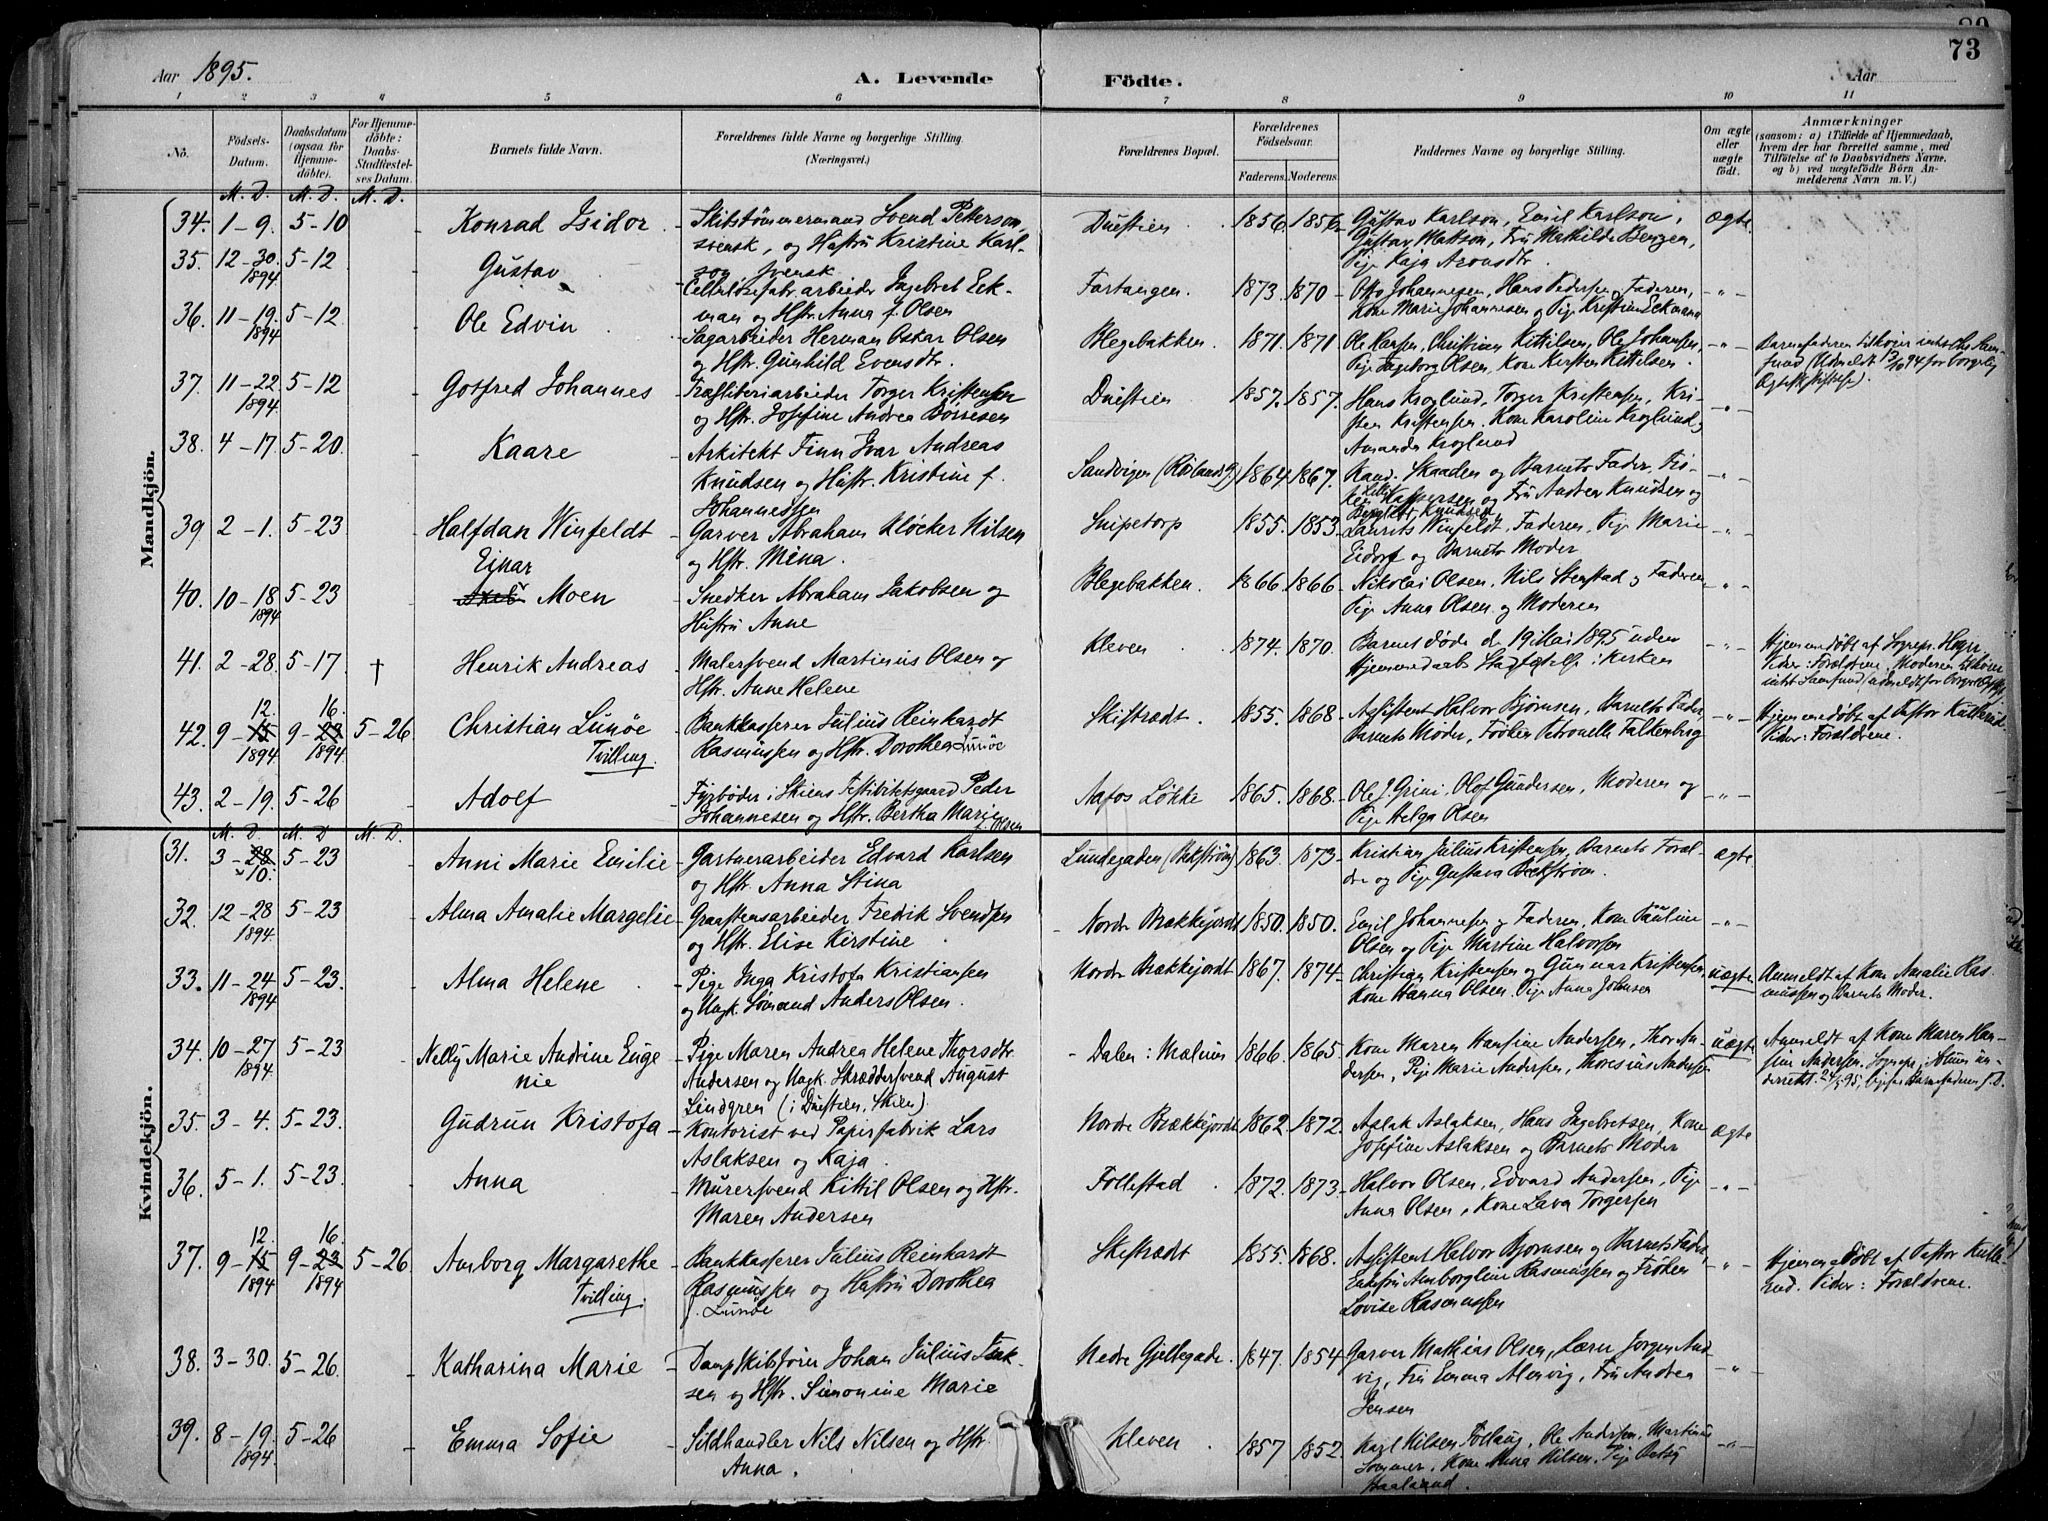 73
Aar 1895.
A. Levende
Födte.
Aar
1 2 3 4 5 6 7 8 9 10 11
No.
Födsels-Datum.
Daabsdatum (ogsaa for Hjemme-döbte).
For Hjemme-döbte: Daabs-Stadfæstel-ses Datum.
Barnets fulde Navn.
Forældrenes fulde Navne og borgerlige Stilling.
(Næringsvei.)
Forældrenes Bopæl.
Forældrenes Födselsaar.
Faderens. Moderens.
Faddernes Navne og borgerlige Stilling.
Om ægte eller uægte födt.
Anmærkninger
(saasom: a) i Tilfælde af Hjemmedaab,
hvem der har forrettet samme, med
Tilföielse af to Daabsvidners Navne,
og b) ved uægtefödte Börn An-
melderens Navn m. V.)
M. D. M. D. M. D.
Mandkjön.
34. 1-9. 5-10 - Konrad Isidor - Skibstømmermand Svend Petterson,
svensk, og Hustru Kristine Karl-
son svensk
Duestien 1856. 1856 - Gustav Karlson, Emil Karlson,
Gustav Mattson, Fru Mathilde Bengen,
Pige Kaja Aronsdtr. ægte
35. 12-30. 1894 5-12 - Gustav - Cellulosefabr. arbeider Ingebret Eck-
man og Hstr. Anna f. Olsen
Fartangen. 1873. 1870 - Otto Johannesen, Hans Pedersen, Faderen,
Kone Marie Johannesen og Pige Kristine Eckmann -"-
36. 11-19. 1894 5-12 - Ole Edvin - Sagarbeider Herman Oskar Olsen
og Hstr. Gunhild Evensdtr.
Blegebakken. 1871. 1871 Ole Hansen, Christian Kittilsen, Ole Johansen,
Pige Ingeborg Olsen, Kone Kirsten Kittilsen. -"-
37. 11-22 1894 5-12 - Gotfred Johannes - Træsliberiarbeider Torger Kristensen
og Hstr. Josefine Andrea Børresen
Duestien 1857. 1857. Hans Kroglund, Torger Kristensen, Kri-
sten Kristensen. Kone Karoline Kroglund,
Amanda Kroglund -"-
38. 4-17. 5-20 - Kaare - Arkitekt Finn Ivar Andreas
Knudsen og Hustr. Kristine f.
Johannessen
Sandvigen 1864 1867. Kand. Skaaden og Barnets Fader, Frø-
ken Lilly Kaspersen og Fru Andrea Knudsen og
Bergljot Knudsen -"-
39 2-1. 5-23 - Halfdan Winfeldt - Garver Abraham Kløcker Nilsen
og Hstr. Mina.
Snipetorp 1855. 1853. Laurits Winfeldt. Faderen, Pige Marie
Eidorf og Barnets Moder -"-
40. 10-18 1894 5-23 - Einar Moen - Snedker Abraham Jakobsen og
Hustru Anne
Blegebakken. 1866 1866 - Nikolai Olsen, Nils Stenstad, Faderen
Pige Anna Olsen og Moderen -"-
41. 2-28. 5-17 † Henrik Andreas - Malersvend Martinius Olsen og
Hstr. Anne Helene
Kleven 1874. 1870. Barnet døde d. 19 Mai 1895 uden
Hjemmedaabs Stadfæstelse i Kirken -"-
42. 9-15 12. 1894 9-23 16. 1894 5-26 Christian Lunöe
Tvilling. - Bankkasserer Julius Reinhardt
Rasmussen og Hstr. Dorothea Lunöe
Skistrædt. 1855. 1868 - Assistent Halvor Bjørnsen, Barnets Fader
Barnets Moder, Frøken Petronelle Falkenberg -"- Hjemmedøbt af Pastor Kullerud.
Vider: Forældrene.
43. 2-19. 5-26 - Adolf - Fyrbøder i Skiens Festivitetsgaard Peder
Johannesen og Hstr. Bertha Marie
f. Olsen
Aafos Løkke 1865. 1868. Ole J. Grini. Olof Gundersen, Moderen og
Pige Helga Olsen -"-
Kvindekjön.
M. D. M. D M. D.
31. 3-28 10. 5-23 - Anni Marie Emilie - Gartnerarbeider Edvard Karlsen
og Hstr. Anna Stina
Lundegaden (Bekstrøm) 1863. 1873 - Kristian Julius Kristensen, Barnets Foræl-
dre og Pige Gustava Bekstrøm. ægte
32. 12-28 1894. 5-23 - Alma Amalie Margelie - Graastensarbeider Fredrik Svendsen
og Hstr. Elise Kirstine
Nordre Brækkejordet 1850. 1850. Emil Johannesen, Faderen, Kone Pauline
Olsen og Pige Martine Halvorsen -"-
33. 11-24 1894 5-23. - Alma Helene - Pige Inga Kristofa Kristiansen
og Ungk. Sømand Anders Olsen.
Nordre Brækkejordet 1867. 1874 - Christian Kristensen og Gunnar Kristensen,
Kone Hanna Olsen. Pige Anna Johnsen uægte Anmeldt af Kone Amalie Ras-
mussen og Barnets Moder.
34. 10-27 1894. 5-23 - Nelly Marie Andrine Euge
nie - Pige Maren Andrea Helene Thorsdtr.
Andersen og Ungk. Skræddersvend August
Lindgren (i Duestien, Skien)
- Dalen i Mælum 1866. 1865. Kone Maren Hansine Andersen, Thor An-
dersen, Pige Marie Andersen, Thoresius Andersen uægte Anmeldt af Kone Maren Han-
sine Andersen.
35. 3-4. 5-23. - Gudrun Kristofa - Kontorist ved Papirfabrik Lars
Aslaksen og Kaja
Nordre Brækkejordet 1862. 1872. Aslak Aslaksen, Hans Ingebretsen, Kone
Josefine Aslaksen og Barnets Moder ægte
36. 5-1. 5-23. - Anna - Murersvend Kittil Olsen og Hstr.
Maren Andersen
Follestad 1872. 1873 - Halvor Olsen, Edvard Andersen, Pige
Anna Olsen, Kone Lava Torgersen -"-
37. 9-15 12. 1894 9-23 16. 1894 5-26 Amborg Margarethe
Tvilling. - Bankkasserer Julius Reinhardt
Rasmussen og Hustru Dorothea
f. Lunöe
Skistrædt 1855. 1868. Assistent Halvor Bjornsen og Barnets Fader,
Enkefru Amborgline Rasmussen og Frøken
Lovise Rasmussen -"- Hjemmedøbt af Pastor Kulle-
rud. Vider: Forældrene.
38. 3-30. 5-26. - Katharina Marie - Dampskibsfører Johan Julius Isak-
sen og Hstr. Simonine Marie
Nedre Gjellegade. 1847. 1854 Garver Mathias Olsen, Lærer Jørgen Aal-
vig, Fru Emma Alervig, Fru Andrea
Jensen -"-
39. 8-19. 1894. 5-26 - Emma Sofie - Sildhandler Nils Nilsen og Hstr.
Anna.
Kleven 1857 1852. Karl Nilsen Follaug, Ole Andersen, Martinus
Sommer, Kone Anna Nilsen. Pige Betsy
Haaland. -"-